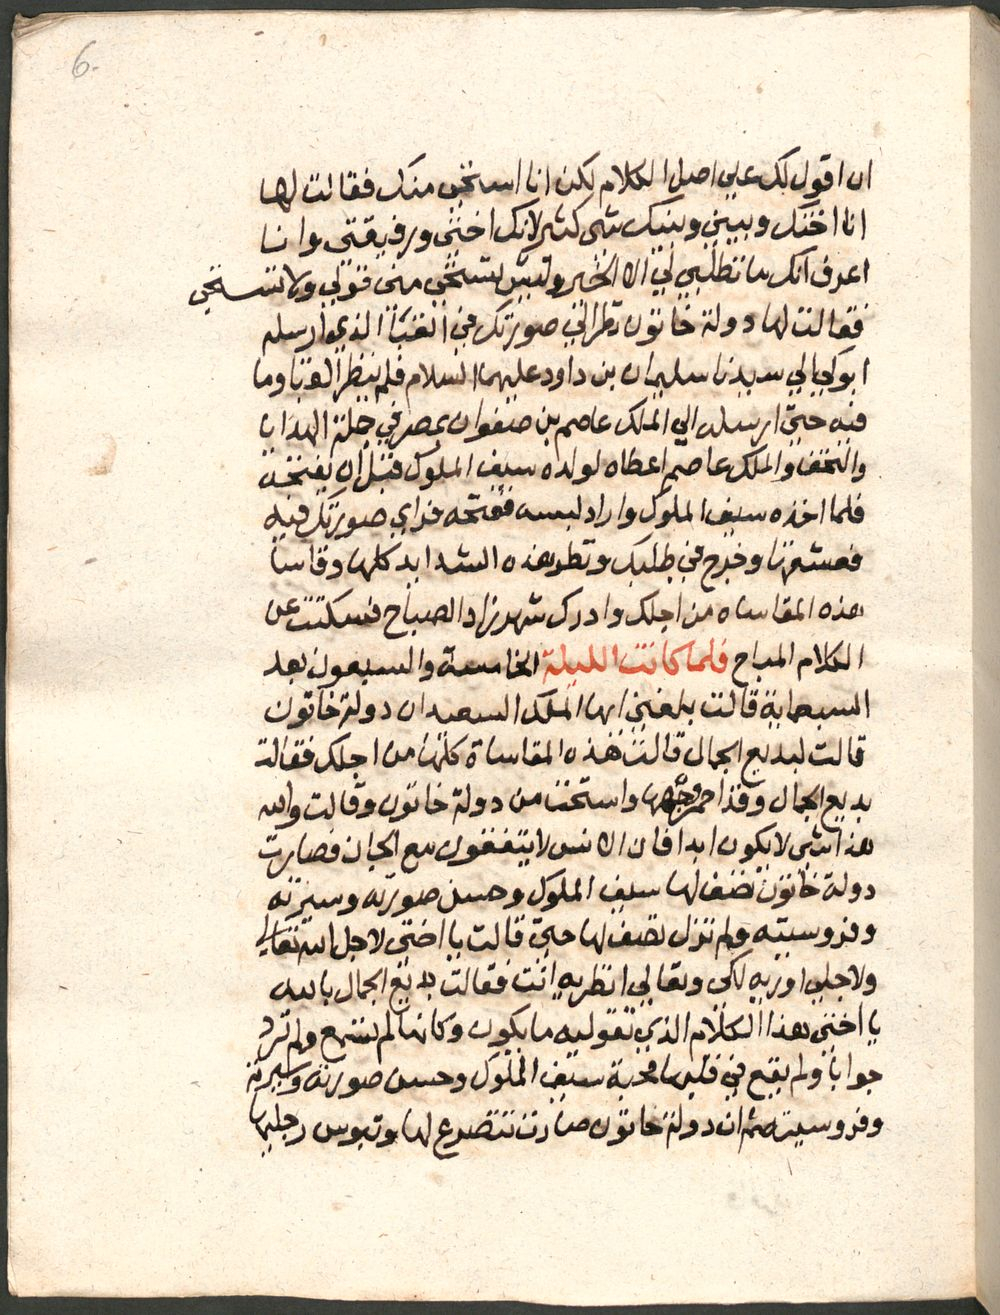 6.
ان اقول لك علي اصل الكلام لكن انا استحي منك فقالت لها
انا اختك وبيني وبينك شي كثير لانك اختي ورفيقتي وانا
اعرف انك ما تطلبي لي الا الخير وليس تستحي مني قولي ولا تستحي
فقالت لها دولة خاتون نظر الي صورتك في القبا الذي ارسله
ابوكي الي سيدنا سليمان بن داود عليهما السلام فلم ينظر القبا وما
فيه حتي ارسله الي الملك عاصم بن صفوان بمصر في جملة الهدايا
والتحف والملك عاصم اعطاه لولده سيف الملوك قبل ان يفتحه
فلما اخذه سيف الملوك واراد لبسه ففتحه فراي صورتك فيه
فعشقها وخرج في طلبك ونظر هذه الشدايد كلها وقاسا
هذه المقاساه من اجلك وادرك شهرزاد الصباح فسكتت عن
الكلام المباح فلما كانت الليلة الخامسة والسبعون بعد
السبعماية قالت بلغني ايها الملك السعيد ان دولة خاتون
قالت لبديع الجمال قالت هذه المقاساة كلها من اجلك فقالت
بديع الجمال وقد احمر وجهها واستحت من دولة خاتون وقالت والله
هذا شي لا يكون ابدا فان الانس لا يتفقون مع الجان فصارت
دولة خاتون تصف لها سيف الملوك وحسن صورته وسيرته
وفروسيته ولم تزل تصف لها حتي قالت يا اختي لاجل الله تعالي
ولاجلي اوريه لكي وتعالي انظريه انت فقالت بديع الجمال بالله
يا اختي هذا الكلام الذي تقوليه ما يكون وكانها لم تسمع ولم ترد
جوابا ولم يقع في قلبها محبة سيف الملوك وحسن صورته وسيرته
وفروسيته ثم ان دولة خاتون صارت تتضرع لها وتبوس رجليها